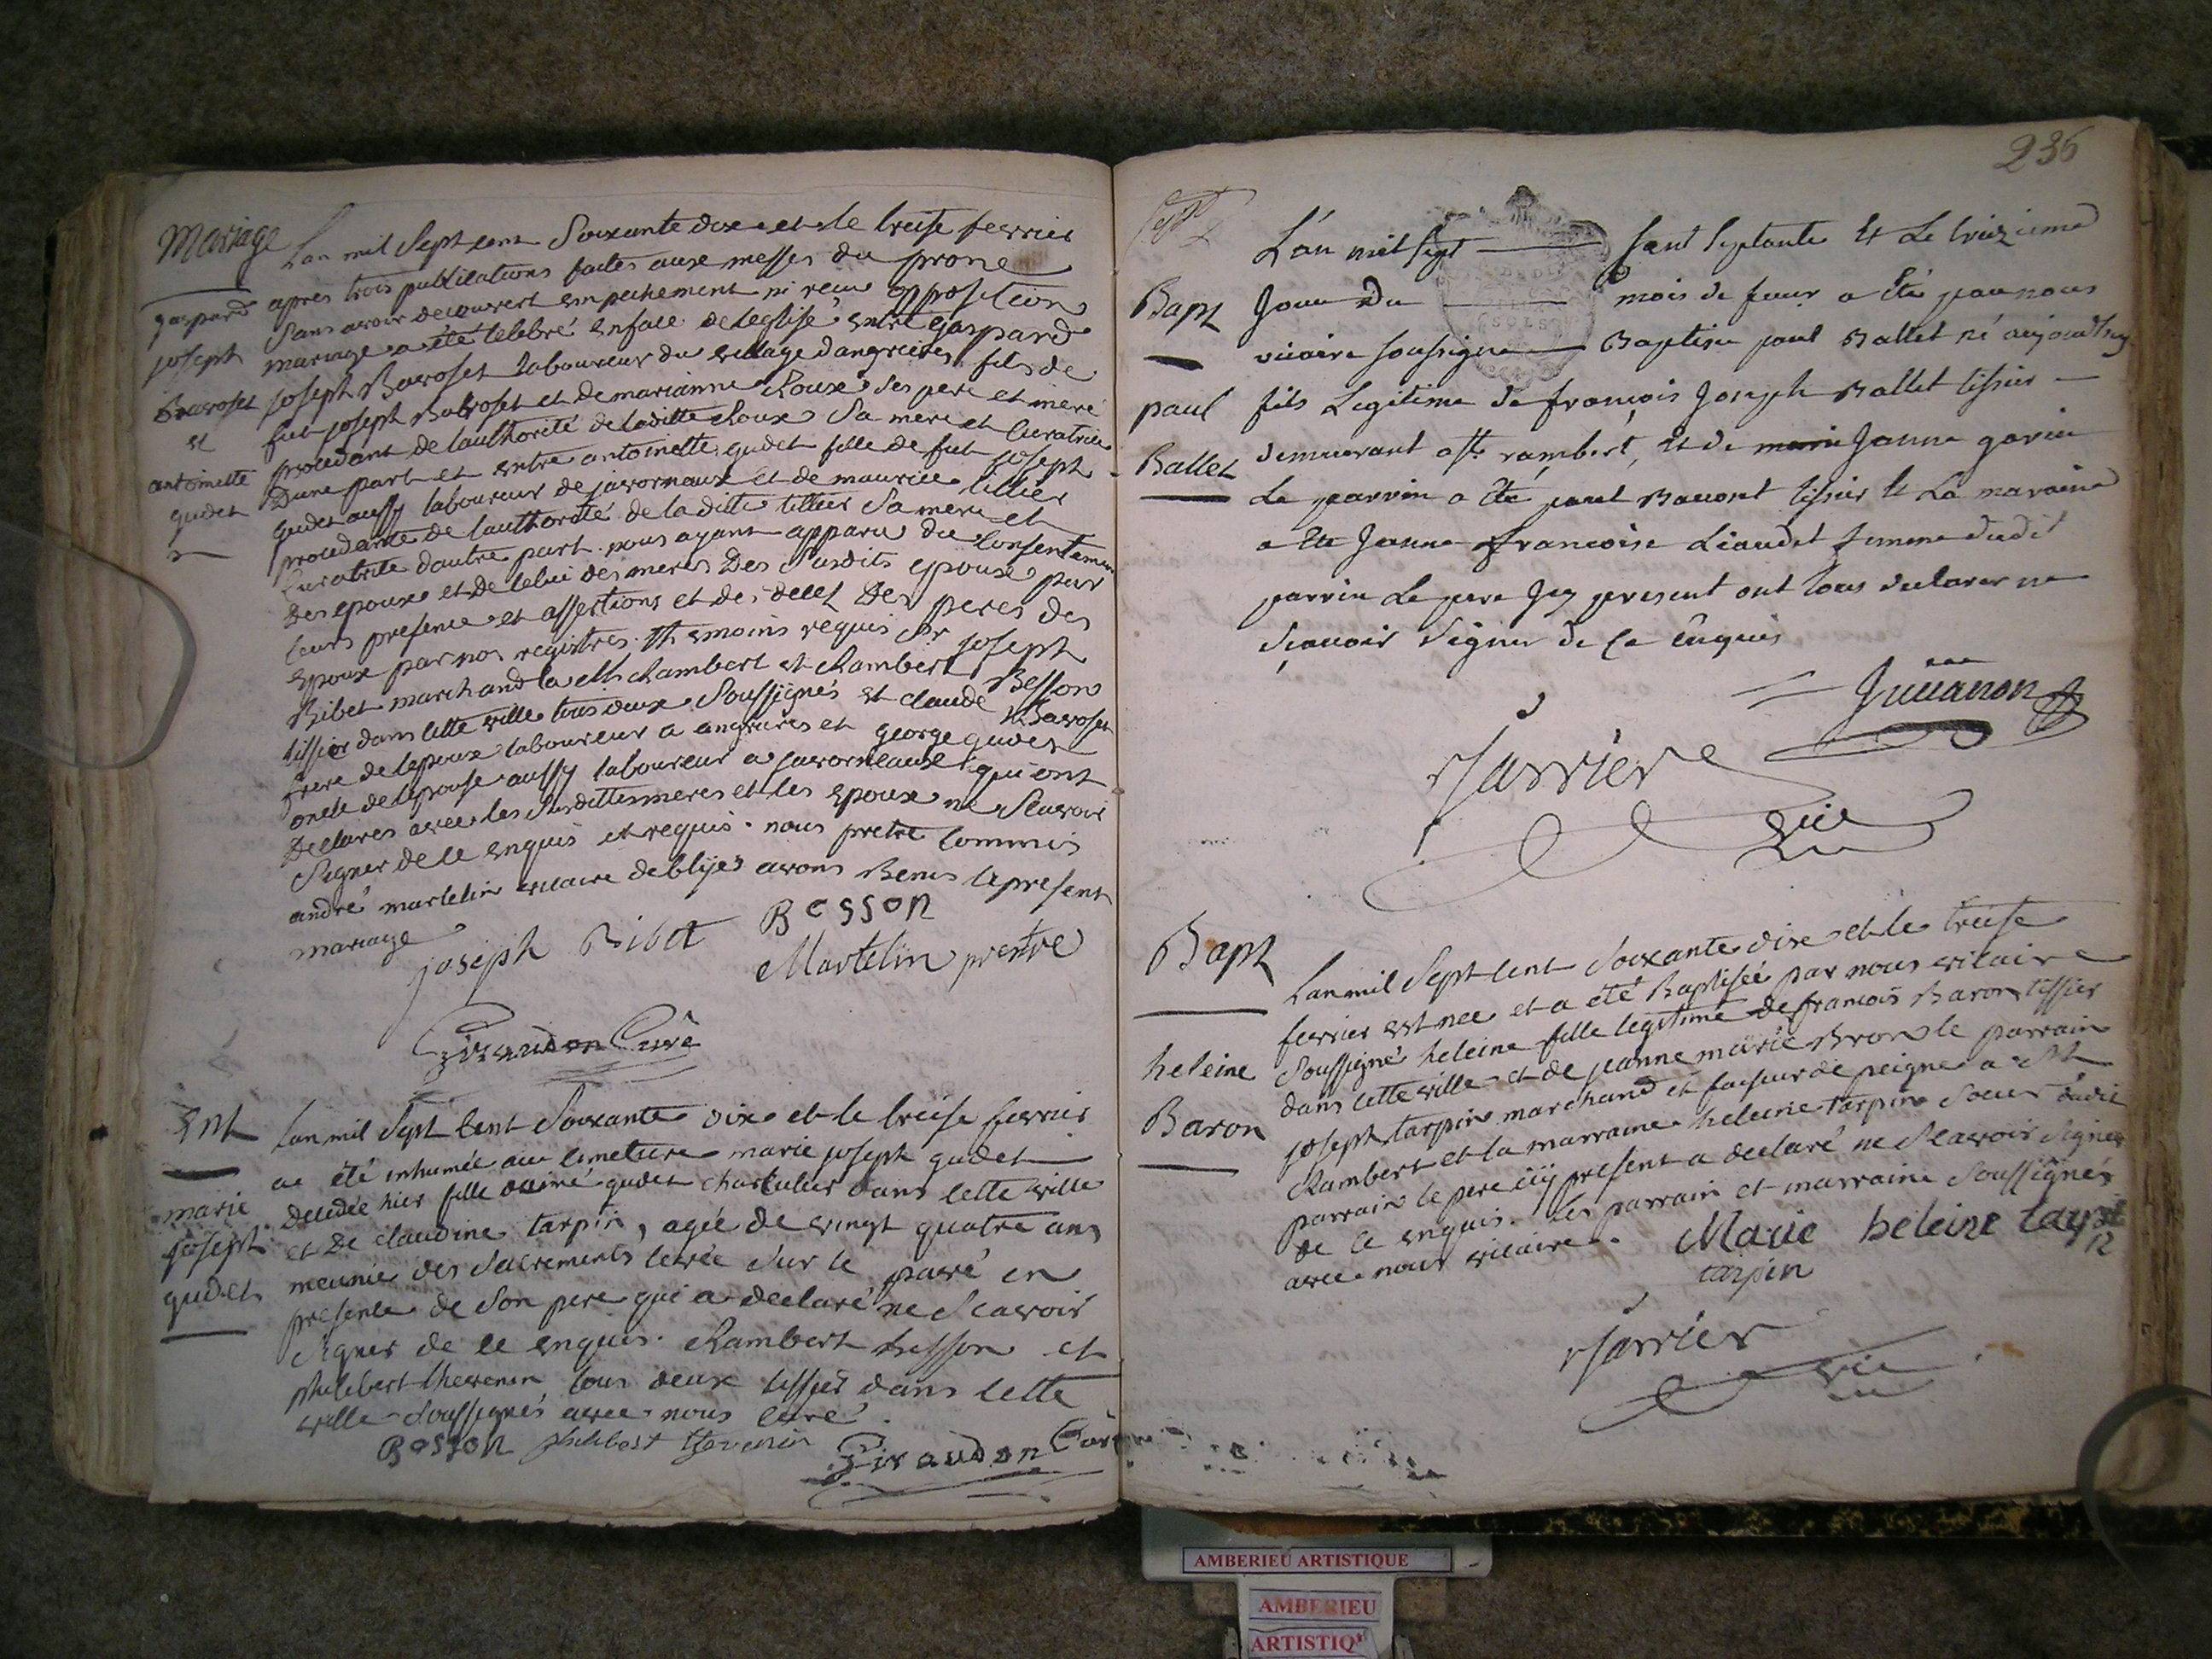 Mariage
gaspard
joseph
Bavoset
et
antoinette
gudet
Lan mil Sept cent Soixante dix et le treise fevrier
apres trois publications faites aux messes du prone
Sans avoir decouvert empechement ni recu opposition
mariage a été célébré en face de leglise entre gaspard
joseph Bavoset laboureur du village dangrieres fils de
fut joseph Bavoset et de marianne Roux ses pere et mere
procedant de lauthorité de laditte Roux Sa mere et Curatrice
Dune part et entre antoinette gudet fille de fut joseph
gudet aussy laboureur de javornaux et de maurice tillier
procedante de lauthorité de la ditte tillier Sa mere et
Curatrice dautre part. nous ayant apparu du Consentemen
Des epoux et de celui des meres Des Susdits epoux par
leurs presence et assertions et des deces Des peres des
epoux par nos registres. temoins requis Sr joseph
Ribet marchand a St Rambert et Rambert Besson
tissier dans cette ville tous deux Soussignés et claude Bavoset
frere de lepoux laboureur a angrieres et george gudet
oncle de lepouse aussy laboureur a javorneaux qui ont
Declarés avec les Susdittes meres et les epoux ne Scavoir
Signer de ce enquis et requis. nous pretre Commis
andré martelin vicaire de blyes avons Benis le present
mariage
joseph Ribet Besson
Martelin prestre
Giraudon Curé
Ent
marie
joseph
gudet
Lan mil Sept Cent Soixante dix et le treise fevrier
a été inhumée au Cimetiere marie joseph gudet
Decedée hier fille daimé gudet dans cette ville
et De claudine tarpin, agée de vingt quatre ans
meunie des Sacrements levée Sur le pavé en
presence de Son pere qui a declaré ne Scavoir
Signer de ce enquis. Rambert besson et
philibert thevenin tous deux tissier dans cette
ville Soussignés avec nous Curé.
Besson philibert thevenin Giraudon Curé
236
Bapt
paul
Ballet
L'an mil sept cent septante Et Le treizieme
Jour Du mois de fevr a Eté par nous
vicaire soussigné Baptisé paul Ballet né aujourd'huy
fils Legitime de françois Joseph Ballet tissier
demeurant a St rambert, Et de marie Jeanne gavin
Le parrin a Eté paul Bavoset tissier Et La maraine
a Eté Jeanne francoise Liaudet femme dudit
parrin Le pere Icy present ont tous declarer ne
Sçavoir Signer de Ce Enquis
Jarrier
vic
Bapt
heleine
Baron
Lan mil Sept cent Soixante dix et le treise
fevrier est nee et a été Baptisée par nous vicaire
Soussigné heleine fille legitime de francois Baron tissier
dans cette ville et de jeanne marie Bron le parrain
joseph tarpin marchand et faiseur de peigne a St
Rambert et la marraine heleine tarpin Soeur dudit
parrain le pere icy present a declaré ne Scavoir Signer
de ce enquis. les parrain et marraine Soussignés
avec nous vicaire. Marie heleine tarpin
tarpin
Jarrier
vic
AMBERIEU ARTISTIQUE
AMBERIEU
ARTISTIQ